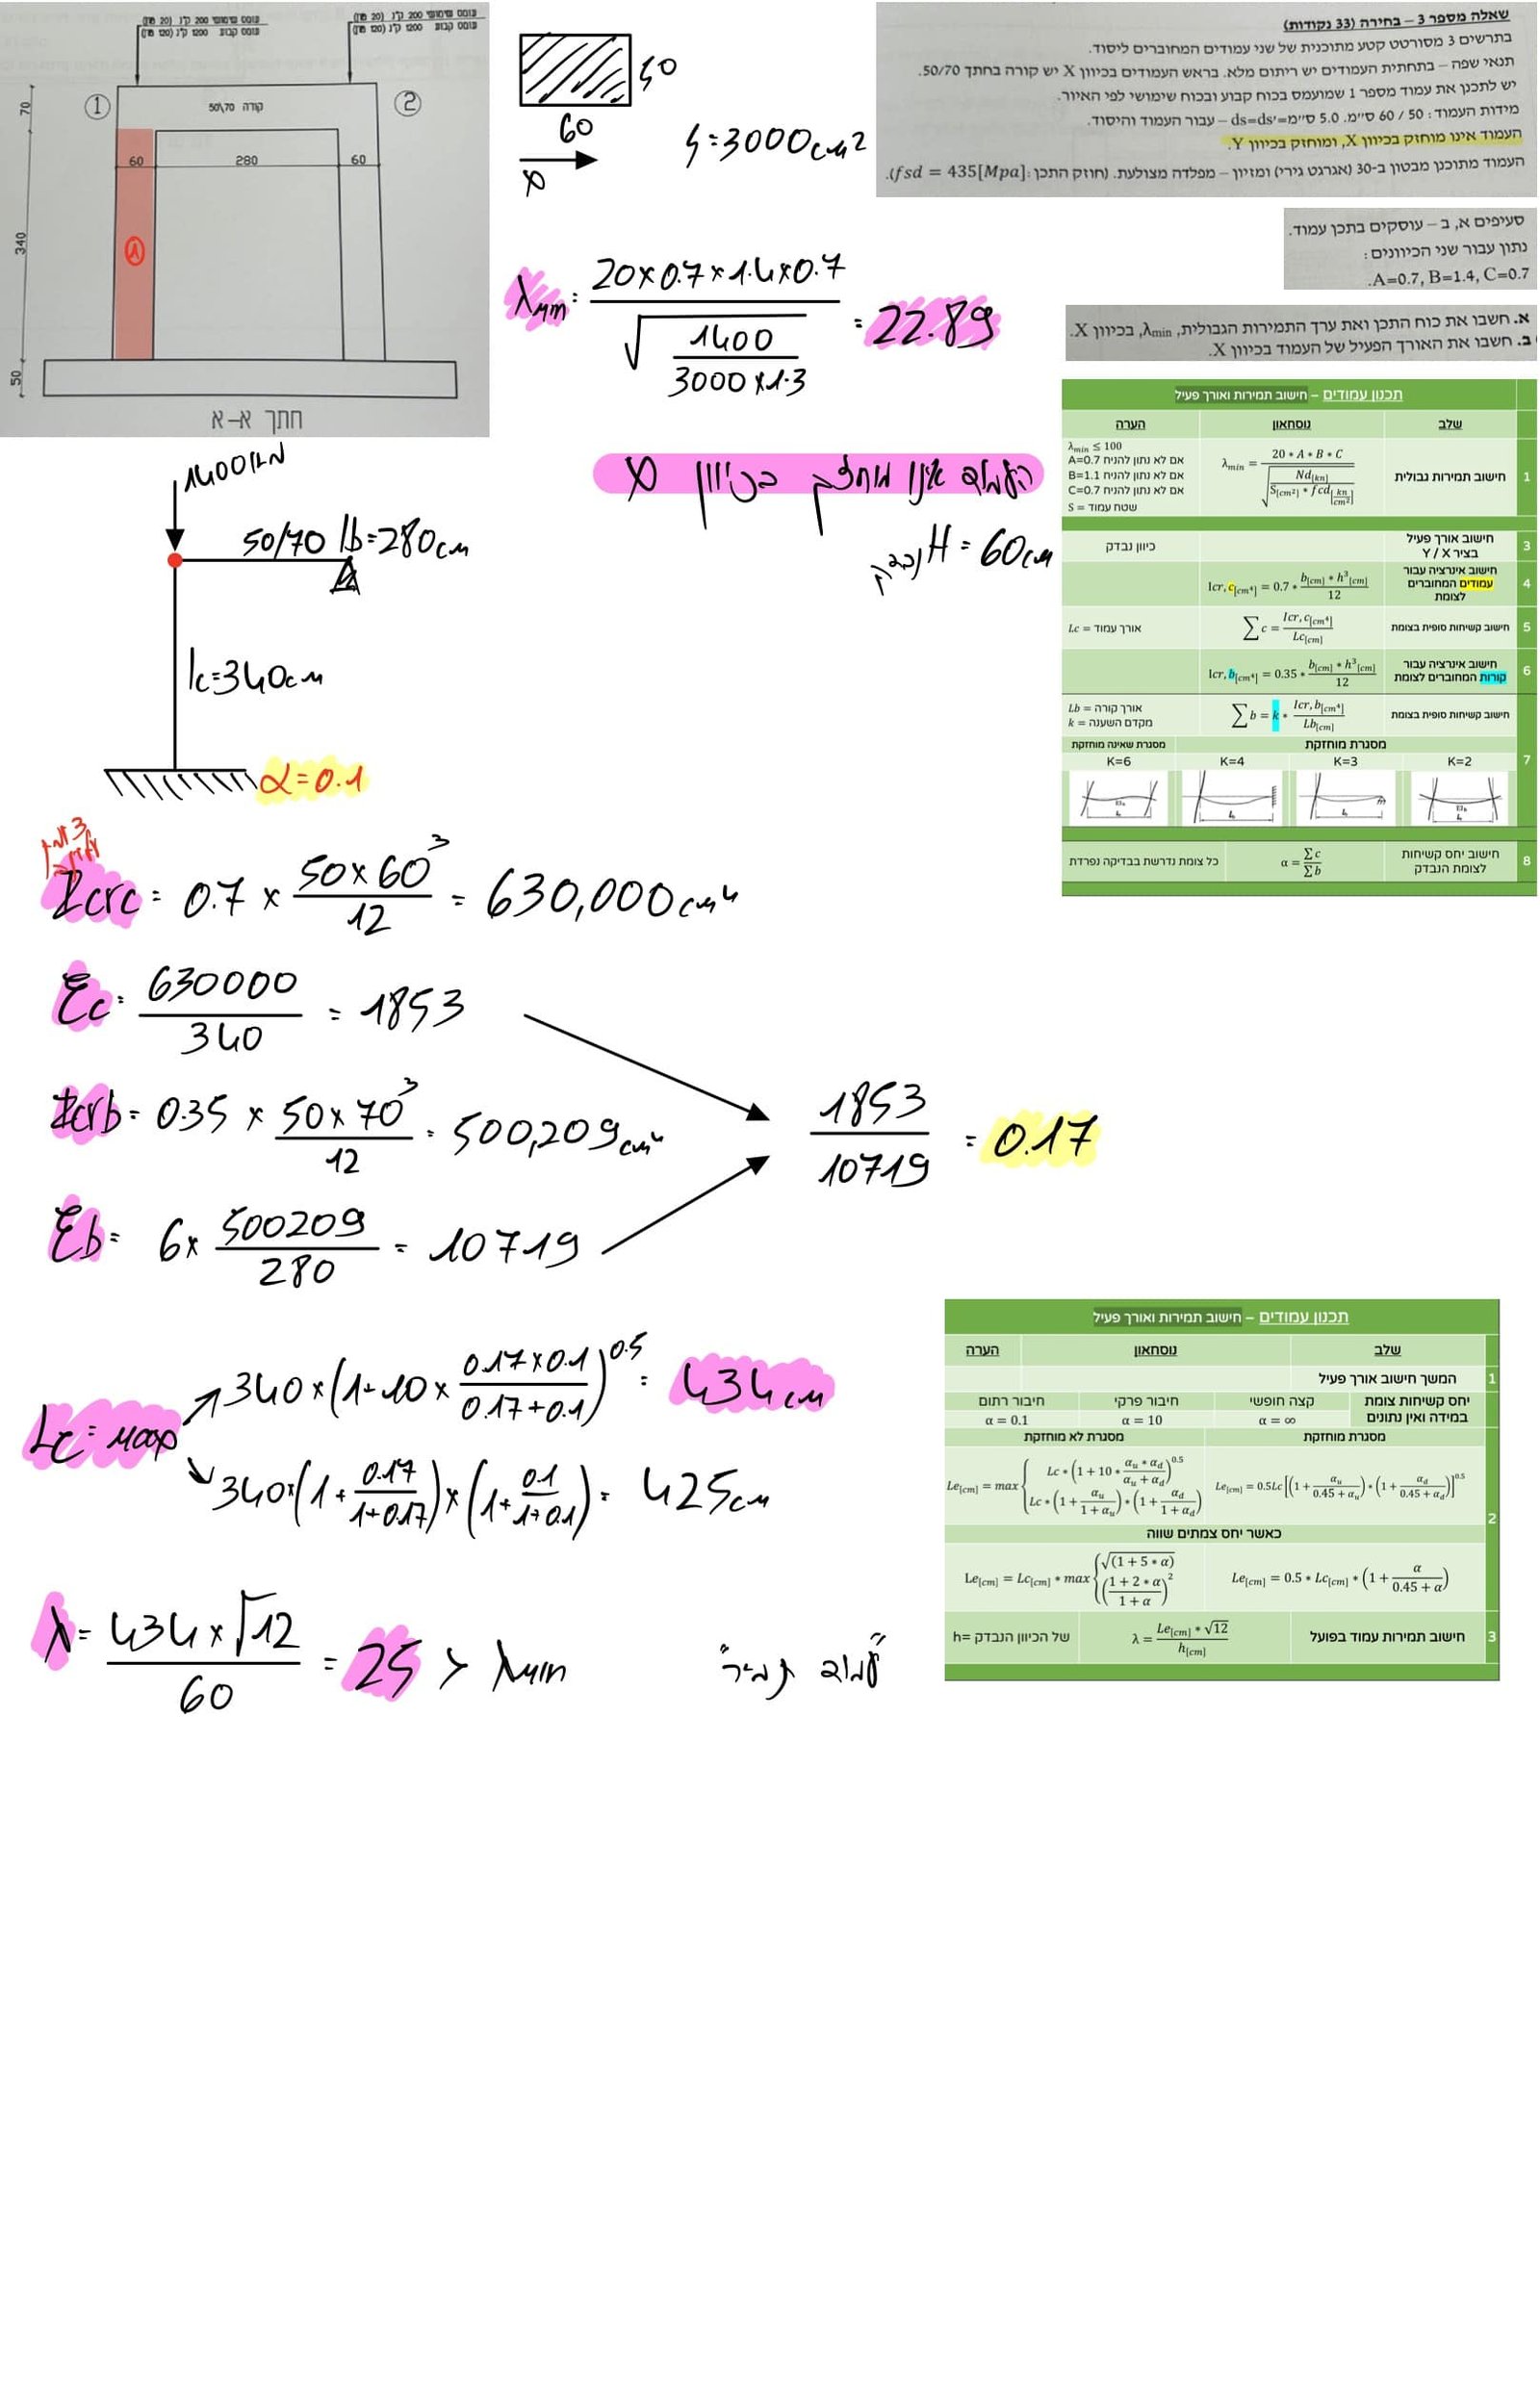 עומס שימושי 200 ק"נ (20 טון)
עומס קבוע 1200 ק"נ (120 טון)
עומס שימושי 200 ק"נ (20 טון)
עומס קבוע 1200 ק"נ (120 טון)
1
2
קורה 50\70
70
60
280
60
340
1
50
חתך א-א
50
60
X
S=3000cm²
שאלה מספר 3 – בחירה (33 נקודות)
בתרשים 3 מסורטט קטע מתוכנית של שני עמודים המחוברים ליסוד.
תנאי שפה – בתחתית העמודים יש ריתום מלא. בראש העמודים בכיוון X יש קורה בחתך 50/70.
יש לתכנן את עמוד מספר 1 שמועמס בכוח קבוע ובכוח שימושי לפי האיור.
מידות העמוד: 50 / 60 ס"מ. 5.0 ס"מ=ds=ds' – עבור העמוד והיסוד.
העמוד אינו מוחזק בכיוון X, ומוחזק בכיוון Y.
העמוד מתוכנן מבטון ב-30 (אגרגט גירי) ומזיון – מפלדה מצולעת. (חוזק התכן: fsd = 435[Mpa]).
סעיפים א, ב – עוסקים בתכן עמוד.
נתון עבור שני הכיוונים:
A=0.7, B=1.4, C=0.7.
א. חשבו את כוח התכן ואת ערך התמירות הגבולית, λmin, בכיוון X.
ב. חשבו את האורך הפעיל של העמוד בכיוון X.
λmin = 20×0.7×1.4×0.7 / √(1400 / 3000×1.3) = 22.89
העמוד אינו מוחזק בכיוון X
H נבדק = 60cm
1400KN
50/70 lb=280cm
lc=340cm
α=0.1
תכנון עמודים – חישוב תמירות ואורך פעיל
שלב נוסחאון הערה
1 חישוב תמירות גבולית λmin = 20 * A * B * C / √(Nd[kn] / S[cm²] * fcd[kn/cm²])
λmin ≤ 100
אם לא נתון להניח A=0.7
אם לא נתון להניח B=1.1
אם לא נתון להניח C=0.7
שטח עמוד = S
3 חישוב אורך פעיל בציר X / Y כיוון נבדק
4 חישוב אינרציה עבור עמודים המחוברים לצומת Icr,c[cm⁴] = 0.7 * b[cm] * h³[cm] / 12
5 חישוב קשיחות סופית בצומת ∑c = Icr,c[cm⁴] / Lc[cm] אורך עמוד = Lc
6 חישוב אינרציה עבור קורות המחוברים לצומת Icr,b[cm⁴] = 0.35 * b[cm] * h³[cm] / 12
חישוב קשיחות סופית בצומת ∑b = k * Icr,b[cm⁴] / Lb[cm] אורך קורה = Lb
מקדם השענה = k
7 מסגרת מוחזקת מסגרת שאינה מוחזקת
K=2 K=3 K=4 K=6
8 חישוב יחס קשיחות לצומת הנבדק α = ∑c / ∑b כל צומת נדרשת בבדיקה נפרדת
Icrc = 0.7 × 50×60³ / 12 = 630,000cm⁴
Σc = 630000 / 340 = 1853
Icrb = 0.35 × 50×70³ / 12 = 500,209cm⁴
Σb = 6× 500209 / 280 = 10719
1853 / 10719 = 0.17
Le = max
340×(1+10× 0.17×0.1 / 0.17+0.1)^0.5 = 434cm
340×(1+ 0.17 / 1+0.17)×(1+ 0.1 / 1+0.1) = 425cm
λ = 434×√12 / 60 = 25 > λmin
"עמוד תמיר"
תכנון עמודים – חישוב תמירות ואורך פעיל
שלב נוסחאון הערה
1 המשך חישוב אורך פעיל
יחס קשיחות צומת במידה ואין נתונים קצה חופשי חיבור פרקי חיבור רתום
α = ∞ α = 10 α = 0.1
מסגרת מוחזקת מסגרת לא מוחזקת
2 Le[cm] = 0.5Lc[(1 + αu / 0.45 + αu) * (1 + αd / 0.45 + αd)]^0.5
Le[cm] = max { Lc * (1 + 10 * αu * αd / αu + αd)^0.5
Lc * (1 + αu / 1 + αu) * (1 + αd / 1 + αd)
כאשר יחס צמתים שווה
Le[cm] = 0.5 * Lc[cm] * (1 + α / 0.45 + α)
Le[cm] = Lc[cm] * max { √(1 + 5 * α)
(1 + 2 * α / 1 + α)²
3 חישוב תמירות עמוד בפועל λ = Le[cm] * √12 / h[cm] של הכיוון הנבדק =h